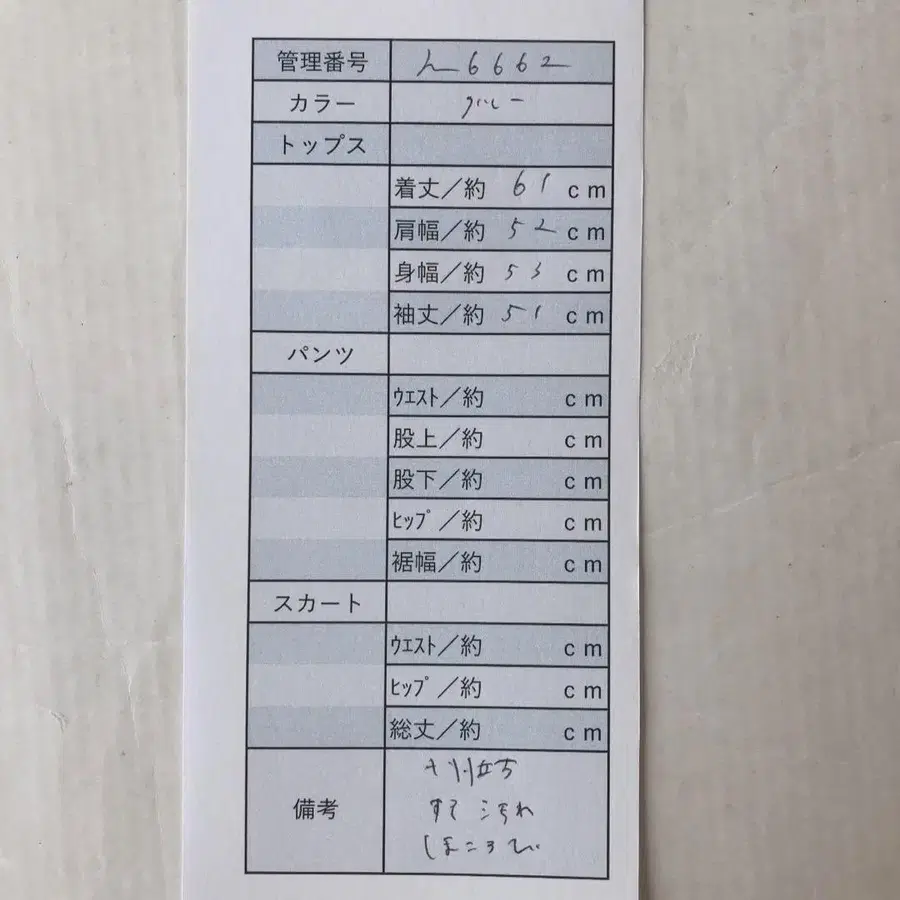 管理番号 ん6662
カラー グレー
トップス
着丈／約 61 cm
肩幅／約 52 cm
身幅／約 53 cm
袖丈／約 51 cm
パンツ
ｳｴｽﾄ／約 cm
股上／約 cm
股下／約 cm
ﾋｯﾌﾟ／約 cm
裾幅／約 cm
スカート
ｳｴｽﾄ／約 cm
ﾋｯﾌﾟ／約 cm
総丈／約 cm
備考
立ち
汚れ
ほころび